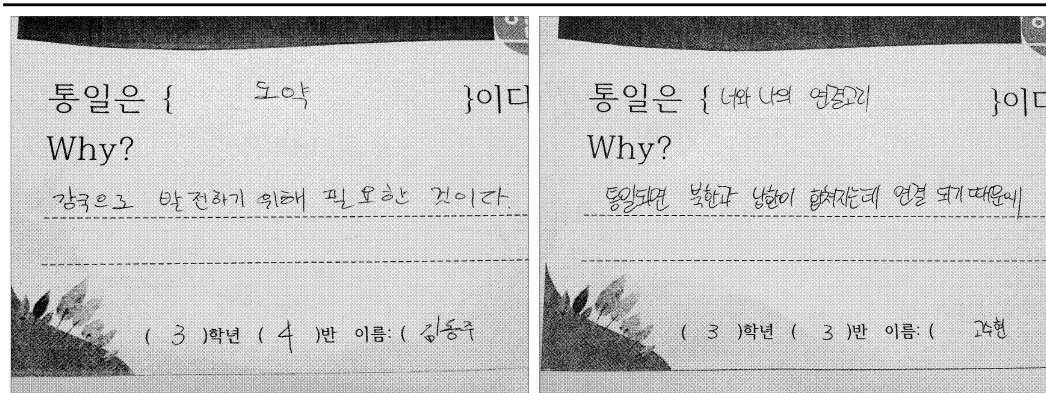 통일은 { 도약 }이다
Why?
강국으로 발전하기 위해 필요한 것이다.
( 3 )학년 ( 4 )반 이름: ( 김동주
통일은 { 너와 나의 연결고리 }이다
Why?
통일되면 북한과 남한이 합쳐지는데 연결 되기 때문에
( 3 )학년 ( 3 )반 이름: ( 고수현